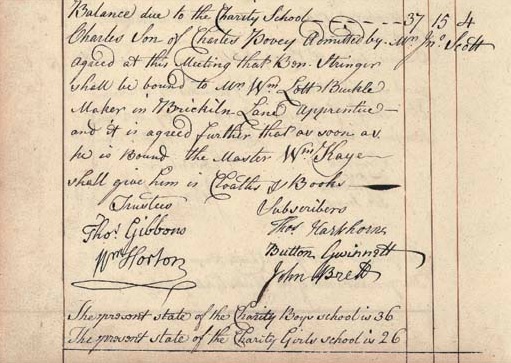 Balance due to the Charity School 37 15 4
Charles Son of Charles Hovey Admitted by Mr. Jno. Scott
agreed at this Meeting that Benn. Stringer
shall be bound to Mr. Wm. Lott Buckle
Maker in Brickiln Lane Apprentice—
and it is agreed further that as soon as
he is Bound the Master Wm Kaye
shall give him is Cloaths & Books
Trustees Subscribers
Thos. Gibbons Thos Hawkhorn
Wm Horton Button Gwinnett
John Brett
The present state of the Charity Boys school is 36
The present state of the Charity Girls school is 26